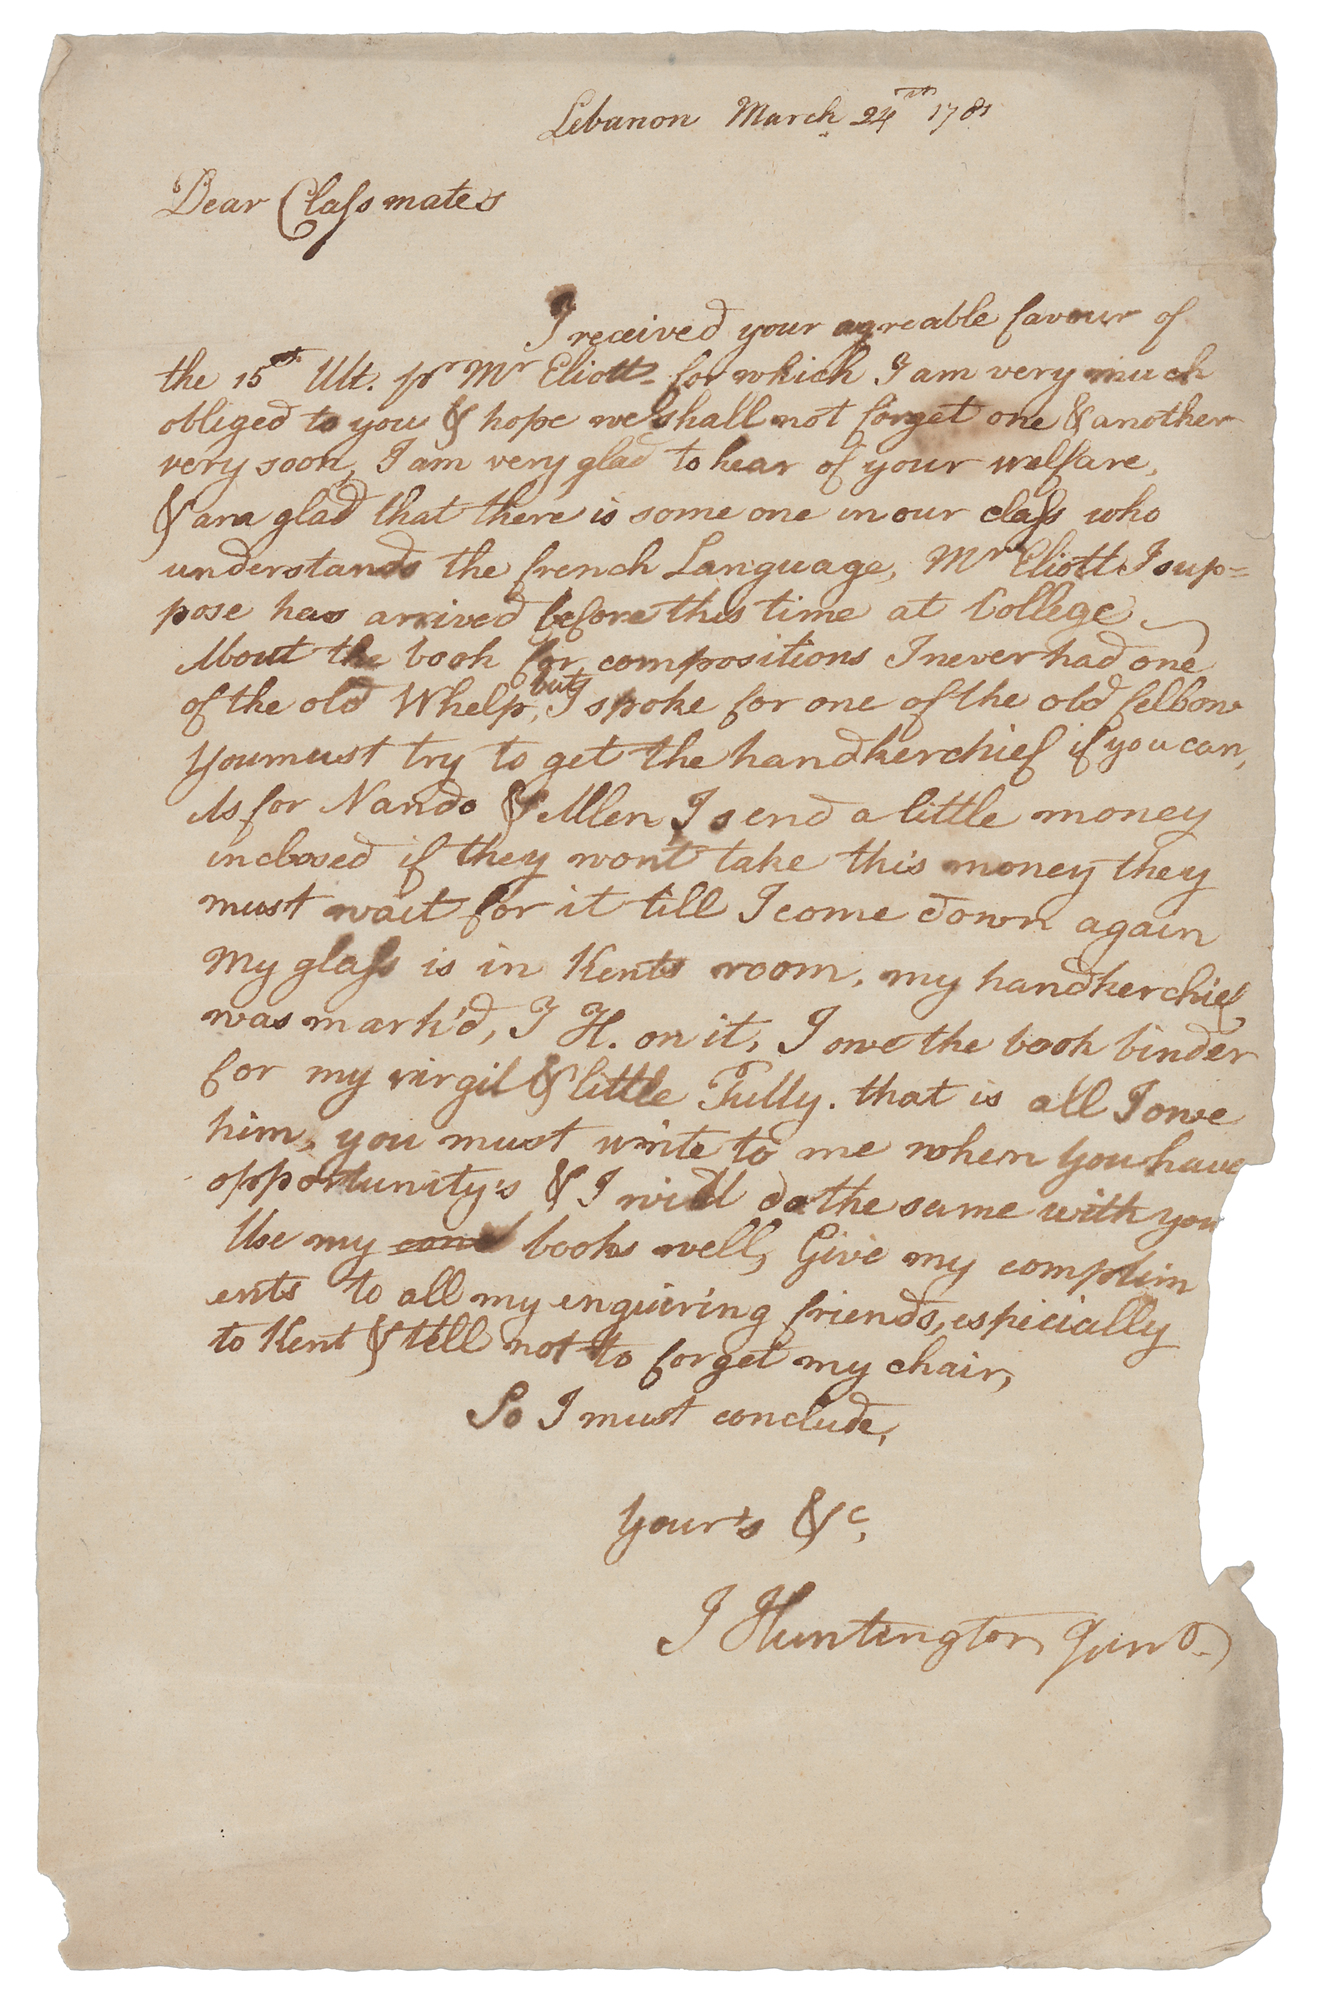 Lebanon March 24th 1781
Dear Classmates
I received your agreable favour of
the 15th Ult. pr Mr Eliott for which I am very much
obliged to you & hope we shall not forget one & another
very soon, I am very glad to hear of your welfare,
& am glad that there is some one in our class who
understands the french Language, Mr Eliott I sup=
pose has arrived before this time at College
About the book for compositions I never had one
of the old Whelp, but I spoke for one of the old fellow
You must try to get the handkerchief if you can,
As for Nando & Allen I send a little money
inclosed if they wont take this money they
must wait for it till I come down again
My glass is in Kents room, my handkerchief
was mark'd, I H. on it, I owe the book binder
for my virgil & little Tully. that is all I owe
him, you must write to me when you have
opportunity's & I will do the same with you
Use my books well, Give my complim
ents to all my enquiring friends, especially
to Kent & tell not to forget my chair,
So I must conclude,
Your's &c,
J Huntington Junr.